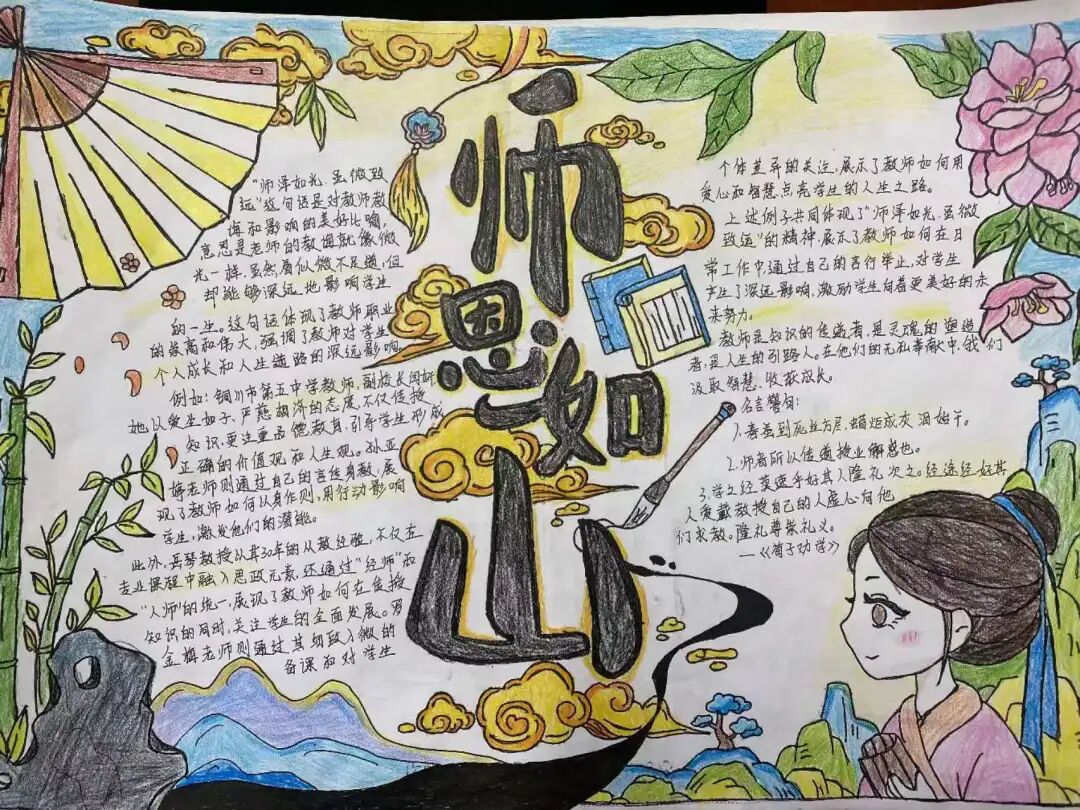 师恩如山
"师泽如光,虽微致
远"这句话是对教师教
诲和影响的美好比喻,
意思是老师的教诲就像微
光一样,虽然看似微不足道,但
却能够深远地影响学生
的一生。这句话体现了教师职业
的崇高和伟大,强调了教师对学生
个人成长和人生道路的深远影响。
例如:铜川市第五中学教师,副校长闫妍
她以爱生如子、严慈相济的态度,不仅传授
知识,更注重品德教育,引导学生形成
正确的价值观和人生观。孙亚
婷老师则通过自己的言传身教,展
现了教师如何以身作则,用行动影响
学生,激发他们的潜能。
此外,岳琴教授从其30年的从教经验,不仅在
专业课程中融入思政元素,还通过"经师"和
"人师"的统一,展现了教师如何在传授
知识的同时,关注学生的全面发展。罗
金梅老师则通过其细致入微的
备课和对学生
个体差异的关注,展示了教师如何用
爱心和智慧,点亮学生的人生之路。
上述例子共同体现了"师泽如光,虽微
致远"的精神,展示了教师如何在日
常工作中,通过自己的言行举止,对学生
产生了深远影响,激励学生向着更美好的未
来努力。
教师是知识的传递者,是灵魂的塑造
者,是人生的引路人。在他们的无私奉献中,我们
汲取智慧,收获成长。
名言警句:
1.春蚕到死丝方尽,蜡炬成灰泪始干。
2.师者所以传道授业解惑也。
3.学之经莫速乎好其人,隆礼次之。经途经好其
人爱戴教授自己的人虚心向他
们求教。隆礼尊崇礼义。
—《荀子劝学》